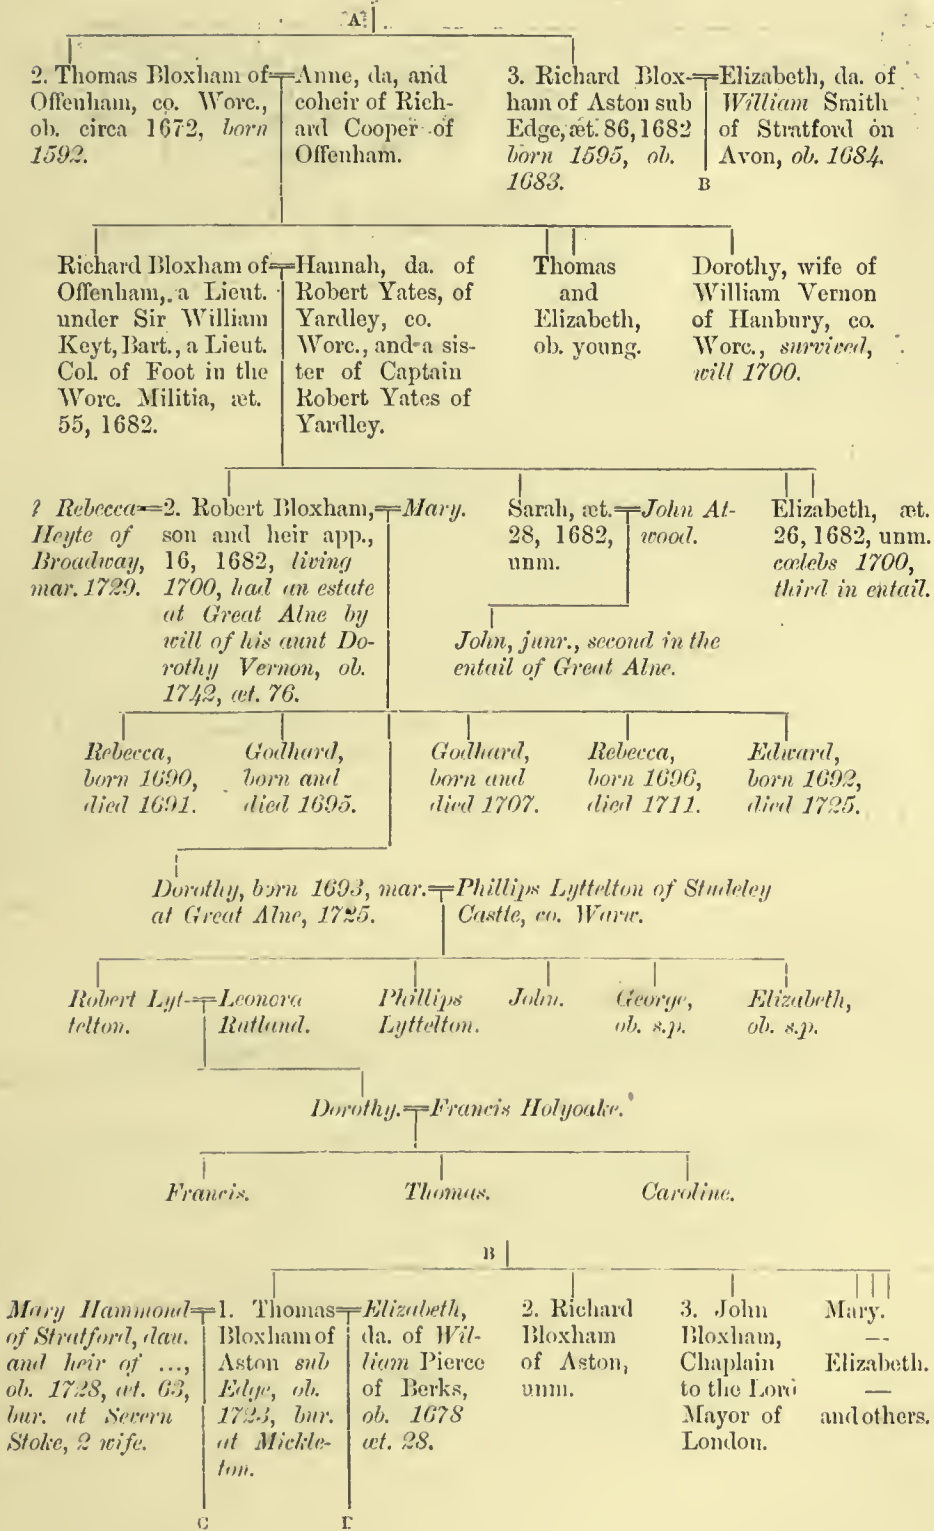 A
2. Thomas Bloxham of
Offenham, co. Worc.,
ob. circa 1672, born
1592.
Anne, da, and
coheir of Rich-
ard Cooper of
Offenham.
3. Richard Blox-
ham of Aston sub
Edge, æt. 86, 1682
born 1595, ob.
1683.
Elizabeth, da. of
William Smith
of Stratford on
Avon, ob. 1684.
B
Richard Bloxham of
Offenham, a Lieut.
under Sir William
Keyt, Bart., a Lieut.
Col. of Foot in the
Worc. Militia, æt.
55, 1682.
Hannah, da. of
Robert Yates, of
Yardley, co.
Worc., and a sis-
ter of Captain
Robert Yates of
Yardley.
Thomas
and
Elizabeth,
ob. young.
Dorothy, wife of
William Vernon
of Hanbury, co.
Worc., survived,
will 1700.
? Rebecca
Heyte of
Broadway,
mar. 1729.
2. Robert Bloxham,
son and heir app.,
16, 1682, living
1700, had an estate
at Great Alne by
will of his aunt Do-
rothy Vernon, ob.
1742, æt. 76.
Mary.
Sarah, æt.
28, 1682,
unm.
John At-
wood.
Elizabeth, æt.
26, 1682, unm.
cœlebs 1700,
third in entail.
John, junr., second in the
entail of Great Alne.
Rebecca,
born 1690,
died 1691.
Godhard,
born and
died 1695.
Godhard,
born and
died 1707.
Rebecca,
born 1696,
died 1711.
Edward,
born 1692,
died 1725.
Dorothy, born 1693, mar.
at Great Alne, 1725.
Phillips Lyttelton of Studeley
Castle, co. Warw.
Robert Lyt-
telton.
Leonora
Rutland.
Phillips
Lyttelton.
John.
George,
ob. s.p.
Elizabeth,
ob. s.p.
Dorothy.
Francis Holyoake.
Francis.
Thomas.
Caroline.
B
Mary Hammond
of Stratford, dau.
and heir of ...,
ob. 1728, æt. 63,
bur. at Severn
Stoke, 2 wife.
1. Thomas
Bloxham of
Aston sub
Edge, ob.
bur.
at Mickle-
ton.
Elizabeth,
da. of Wil-
liam Pierce
of Berks,
ob. 1678
æt. 28.
2. Richard
Bloxham
of Aston,
unm.
3. John
Bloxham,
Chaplain
to the Lord
Mayor of
London.
Mary.
—
Elizabeth.
—
and others.
C